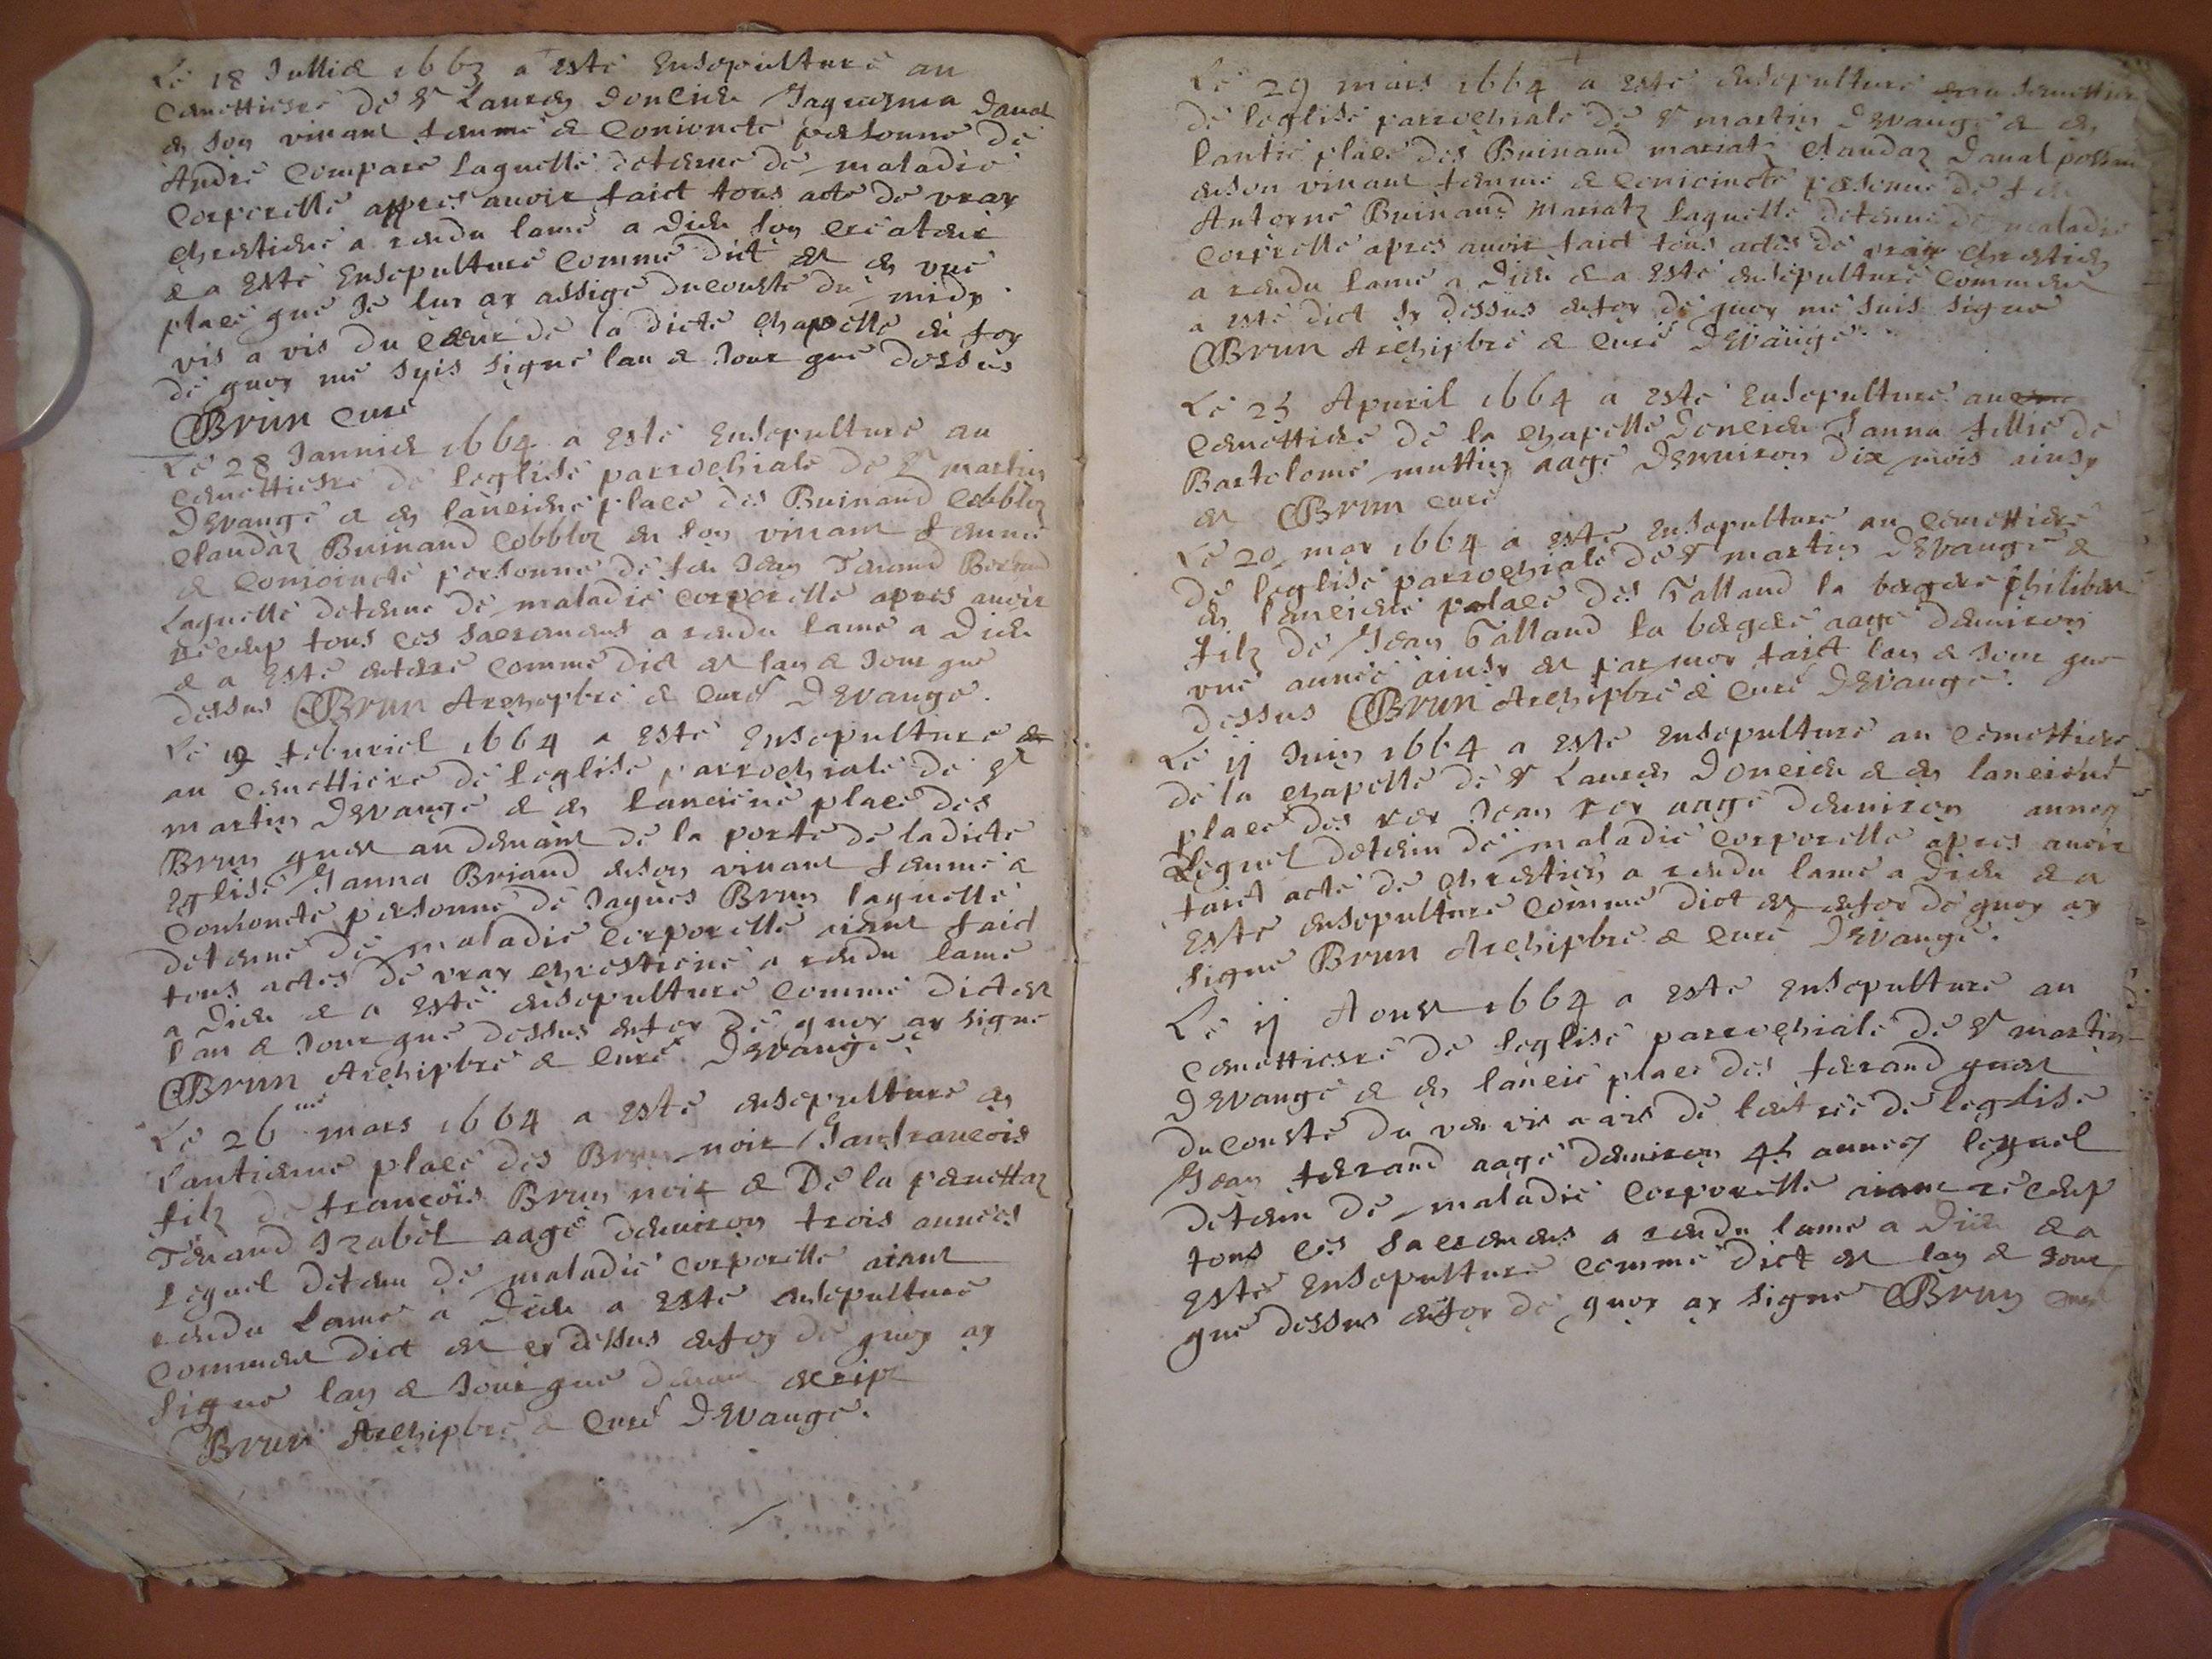 Le 18 Jullié 1663 a esté ensepulturé au
Cemettiesre de St Lauren Doncieu Jaquesma Daval
en son vivant femme & Conioncte personne de
André Compare laquelle detenue de maladie
Corporelle appres avoir faict tous acte de vray
chrestiene a rendu lame a Dieu son createur
& a esté ensepulturé comme dict est en une
place que Je luy ay assigé du cousté du midy
vis a vis du Cœur de la dicte chapelle en foy
de quoy me suis signé lan & Jour que dessus
Brun Curé
Le 28 Janvier 1664 a esté ensepulturé au
Cemettiesre de leglise parrochiale de St martin
Devange & en lanciene place des Buinand Cobbloz
Claudaz Buinand Cobbloz en son vivant femme
& Conioincte personne de feu Jean Tenand
Laquelle detenue de maladie corporelle apres avoir
receup tous ces sacremens a rendu lame a Dieu
& a esté enterré comme dict est lan & Jour que
dessus Brun Archipbre & Curé Devange.
Le 19 febvriel 1664 a esté ensepulturé
au Cemettiere de leglise parrochiale de St
martin Devange & en lanciene place des
Brun quest au devant de la porte de ladicte
Eglise Janna Briand en son vivant femme &
Conioncte personne de Jaques Brun laquelle
detenue de maladie corporelle aiant faict
tous actes de vray chrestiene a rendu lame
a Dieu & a esté ensepulturé comme dict est
lan & Jour que dessus en foy de quoy ay signé
Brun Archipbre & Curé Devange
Le 26me mars 1664 a esté ensepulturé en
Lantienne place des Brun noir Janfrancois
filz de francois Brun noir & De la pernettaz
Tenand Izabel aagé denviron trois années
Lequel detenu de maladie corporelle aiant
rendu Lame a Dieu a esté ensepulturé
comme dict est cy dessus en foy de quoy ay
signé lan & Jour que devant escript
Brun Archipbre & Curé Devange.
Le 29 mars 1664 a esté ensepulturé semettiere
de leglise parrochiale de St martin Devange & en
lantie place des Buinand mariatz Claudaz Daval
en son vivant femme & Conioincte personne de feu
Antoyne Buinand Mariatz laquelle detenue de maladie
corporelle apres avoir faict tous actes de vray chrestien
a rendu lame a Dieu & a esté ensepulturé comme
a esté dict sy dessus en foy de quoy me suis signé
Brun Archipbre & Curé Devange.
Le 25 Apuril 1664 a esté ensepulturé au
Cemettiere de la chapelle Doncieu Janna fillie de
Bartolome muttin aagé Denviron dix mois ainsy
est Brun curé
Le 20 may 1664 a esté ensepulturé au Cemettiere
de leglise parrochiale de St martin Devange &
en lanciene palace des Talland la bergere Philiber
filz de Jean Talland la bergere aagé denviron
une année ainsy est par moy faict lan & Jour que
dessus Brun Archipbre & Curé Devange.
Le ij Juin 1664 a esté ensepulturé au Cemettiere
de la chapelle de St Lauren Doncieu & en lanciene
place des rey Jean rey aagé denviron annes
Lequel detenu de maladie corporelle apres avoir
faict acte de chrestien a rendu lame a Dieu & a
esté ensepulturé comme dict est en foy de quoy ay
signé Brun Archipbre & Curé Devange.
Le ij Aoust 1664 a esté ensepulturé au
Cemettiesre de leglise parrochiale de St martin
Devange & en lancie place des ferrand quest
du cousté du ven vis a vis de lentree de leglise
Jean ferrand aagé denviron 45 annes lequel
detenu de maladie corporelle aiant receup
tous ces sacremens a rendu lame a Dieu & a
esté ensepulturé comme dict est lan & Jour
que dessus en foy de quoy ay signé Brun curé